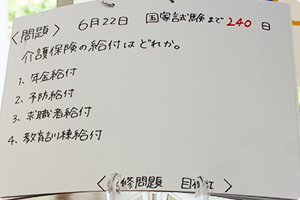 〈問題〉 6月22日 国家試験まで240日
介護保険の給付はどれか。
1、年金給付
2、予防給付
3、求職者給付
4、教育訓練給付
修問題